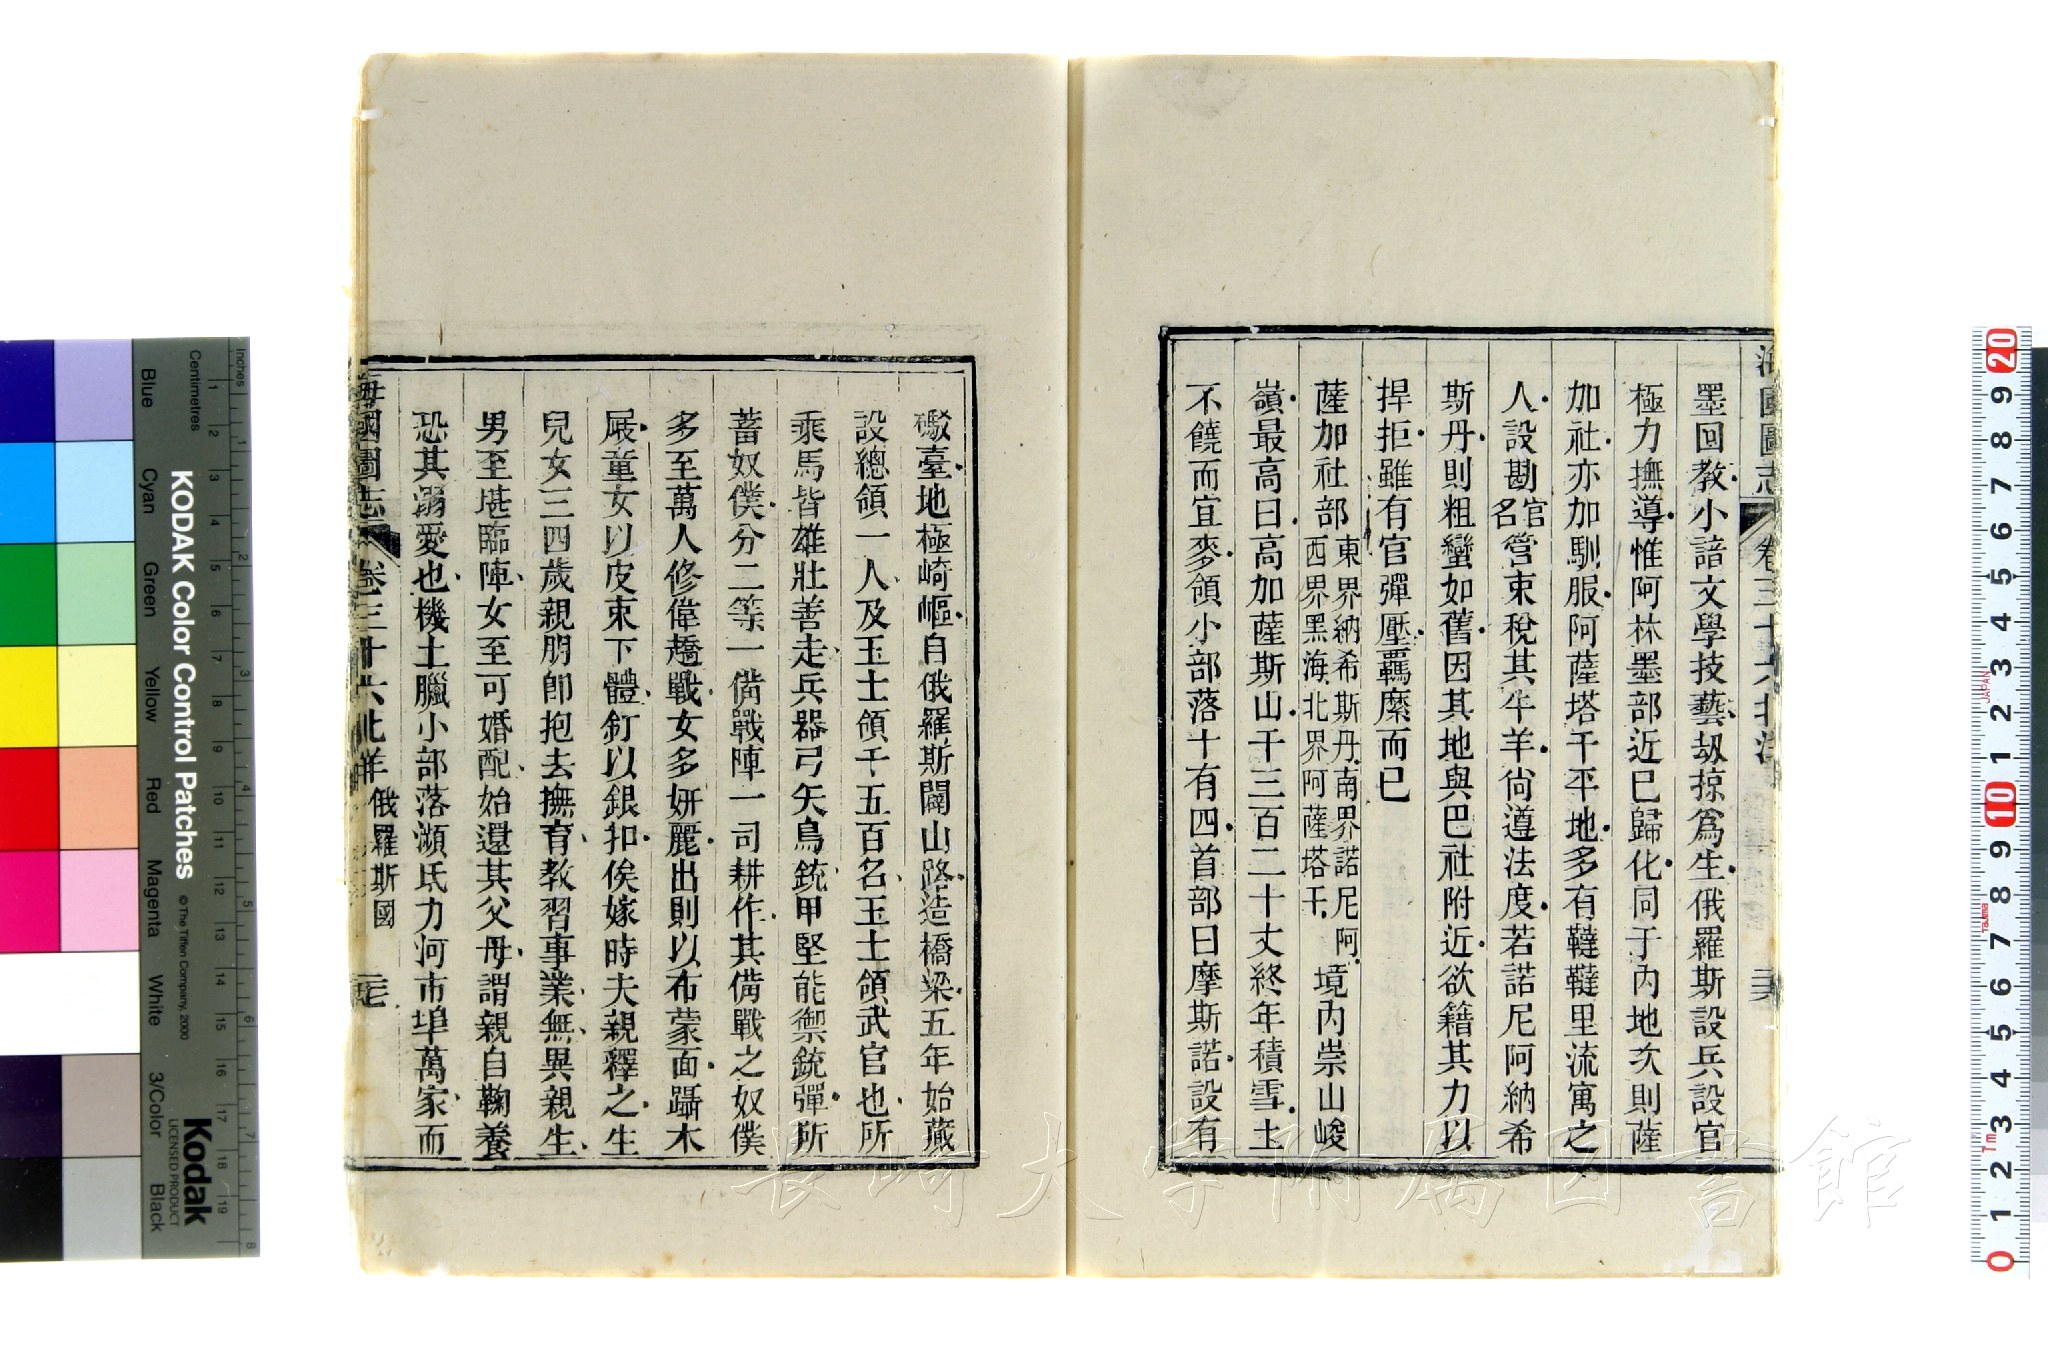 海國圖志
卷三十六北洋
墨回教小諳文學技藝刼掠爲生俄羅斯設兵設官
極力撫導惟阿林墨部近已歸化同于內地次則薩
加社亦加馴服阿薩塔干平地多有韃韃里流寓之
人設勘官名營束稅其牛羊尙遵法度若諾尼阿納希
斯丹則粗蠻如舊因其地與巴社附近欲籍其力以
捍拒雖有官彈壓羈縻而已
薩加社部東界納希斯丹南界諾尼阿西界黑海北界阿薩塔干境內崇山峻
嶺最高曰高加薩斯山千三百二十丈終年積雪土
不饒而宜麥領小部落十有四首部曰摩斯諾設有
礮臺地極崎嶇自俄羅斯闢山路造橋梁五年始蕆
設總領一人及玉士領千五百名玉士領武官也所
乘馬皆雄壯善走兵器弓矢鳥銃甲堅能禦銃彈所
蓄奴僕分二等一備戰陣一司耕作其備戰之奴僕
多至萬人修偉趫戰女多妍麗出則以布蒙面躡木
屐童女以皮束下體釘以銀扣俟嫁時夫親釋之生
兒女三四歲親朋卽抱去撫育教習事業無異親生
男至堪臨陣女至可婚配始還其父母謂親自鞠養
恐其溺愛也機土臘小部落瀕氐力河市埠萬家而
海國圖志
卷三十六北洋俄羅斯國
KODAK Color Control Patches
© The Tiffen Company, 2000
Kodak
LICENSED PRODUCT
Inches
Centimetres
Blue Cyan Green Yellow Red Magenta White 3/Color Black
長崎大学附属図書館